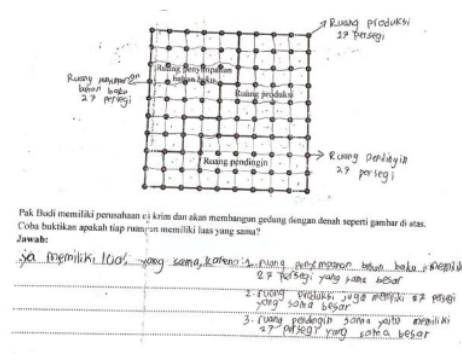 Ruang produksi
27 persegi
Ruang penyimpanan
bahan baku
27 persegi
Ruang penyimpanan
bahan baku
Ruang produksi
Ruang pendingin
Ruang Pendingin
27 persegi
Pak Budi memiliki perusahaan es krim dan akan membangun gedung dengan denah seperti gambar di atas.
Coba buktikan apakah tiap ruangan memiliki luas yang sama?
Jawab:
ya memiliki luas yang sama, karena: 1. ruang penyimpanan bahan baku memiliki
27 persegi yang sama besar
2. ruang produksi juga memiliki 27 persegi
yang sama besar
3. ruang pendingin sama yaitu memiliki
27 persegi yang sama besar